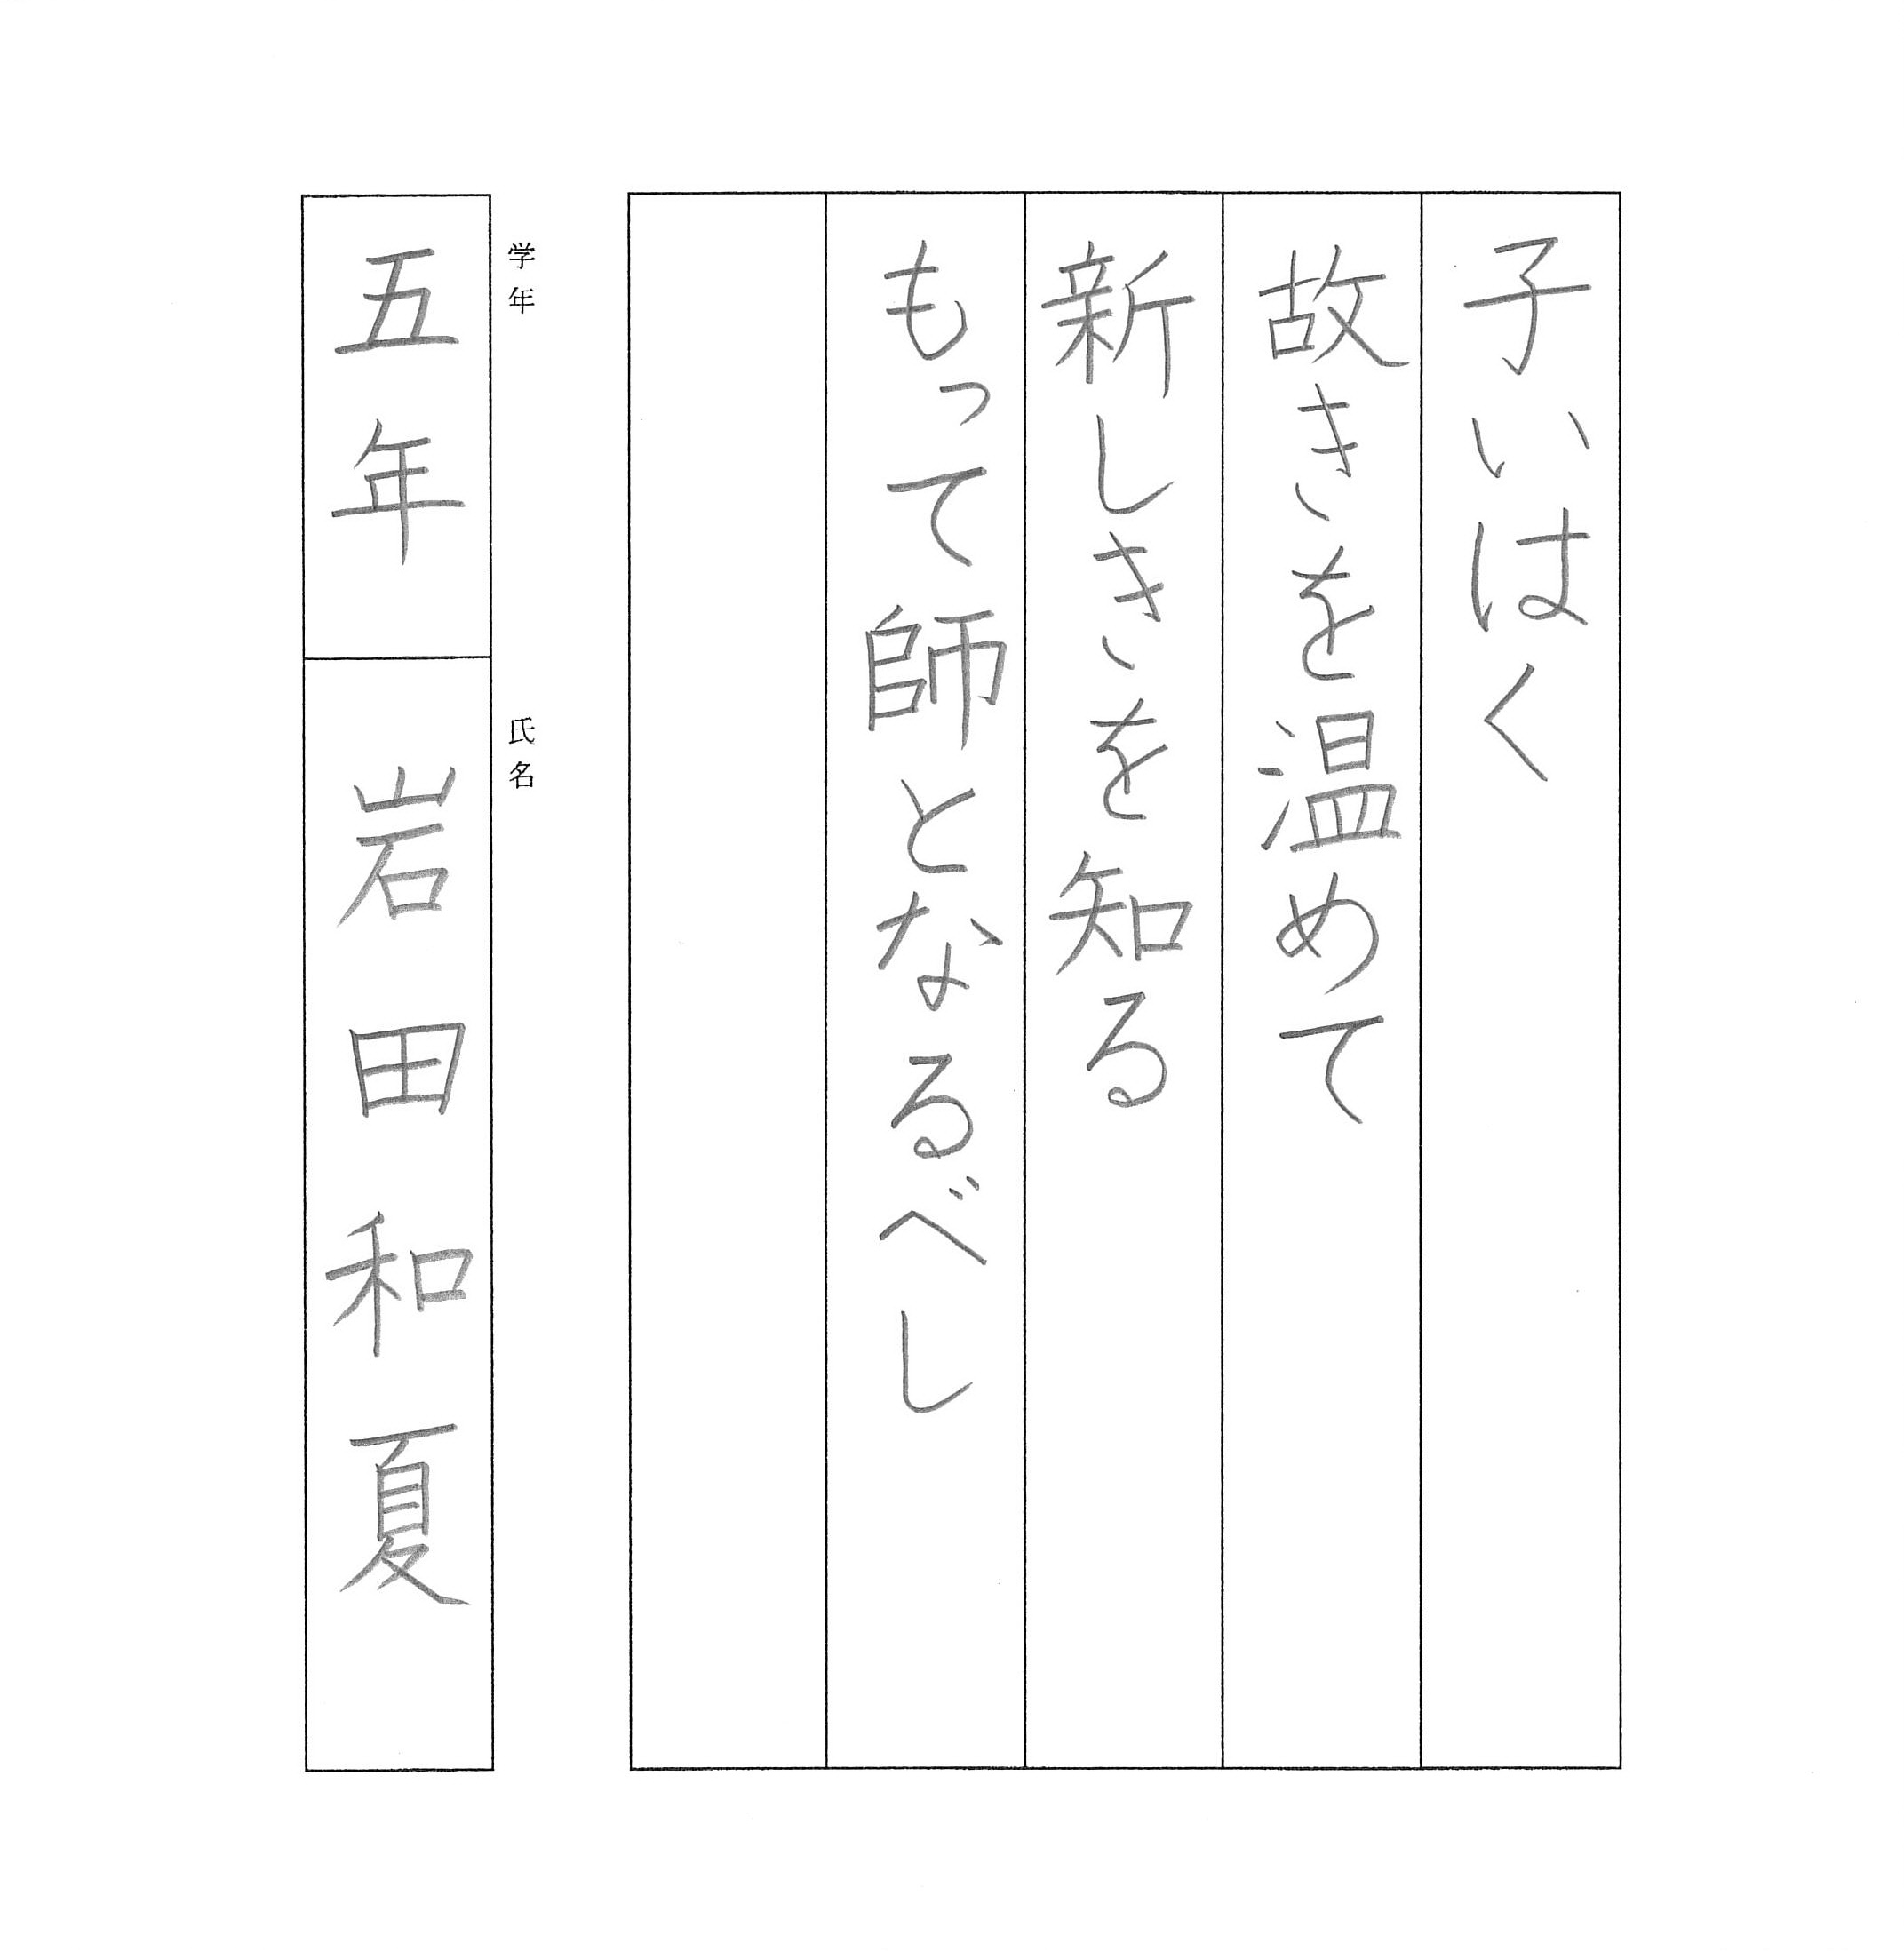 子いはく
故きを温めて
新しきを知る
もって師となるべし
学年
五年
氏名
岩田和夏